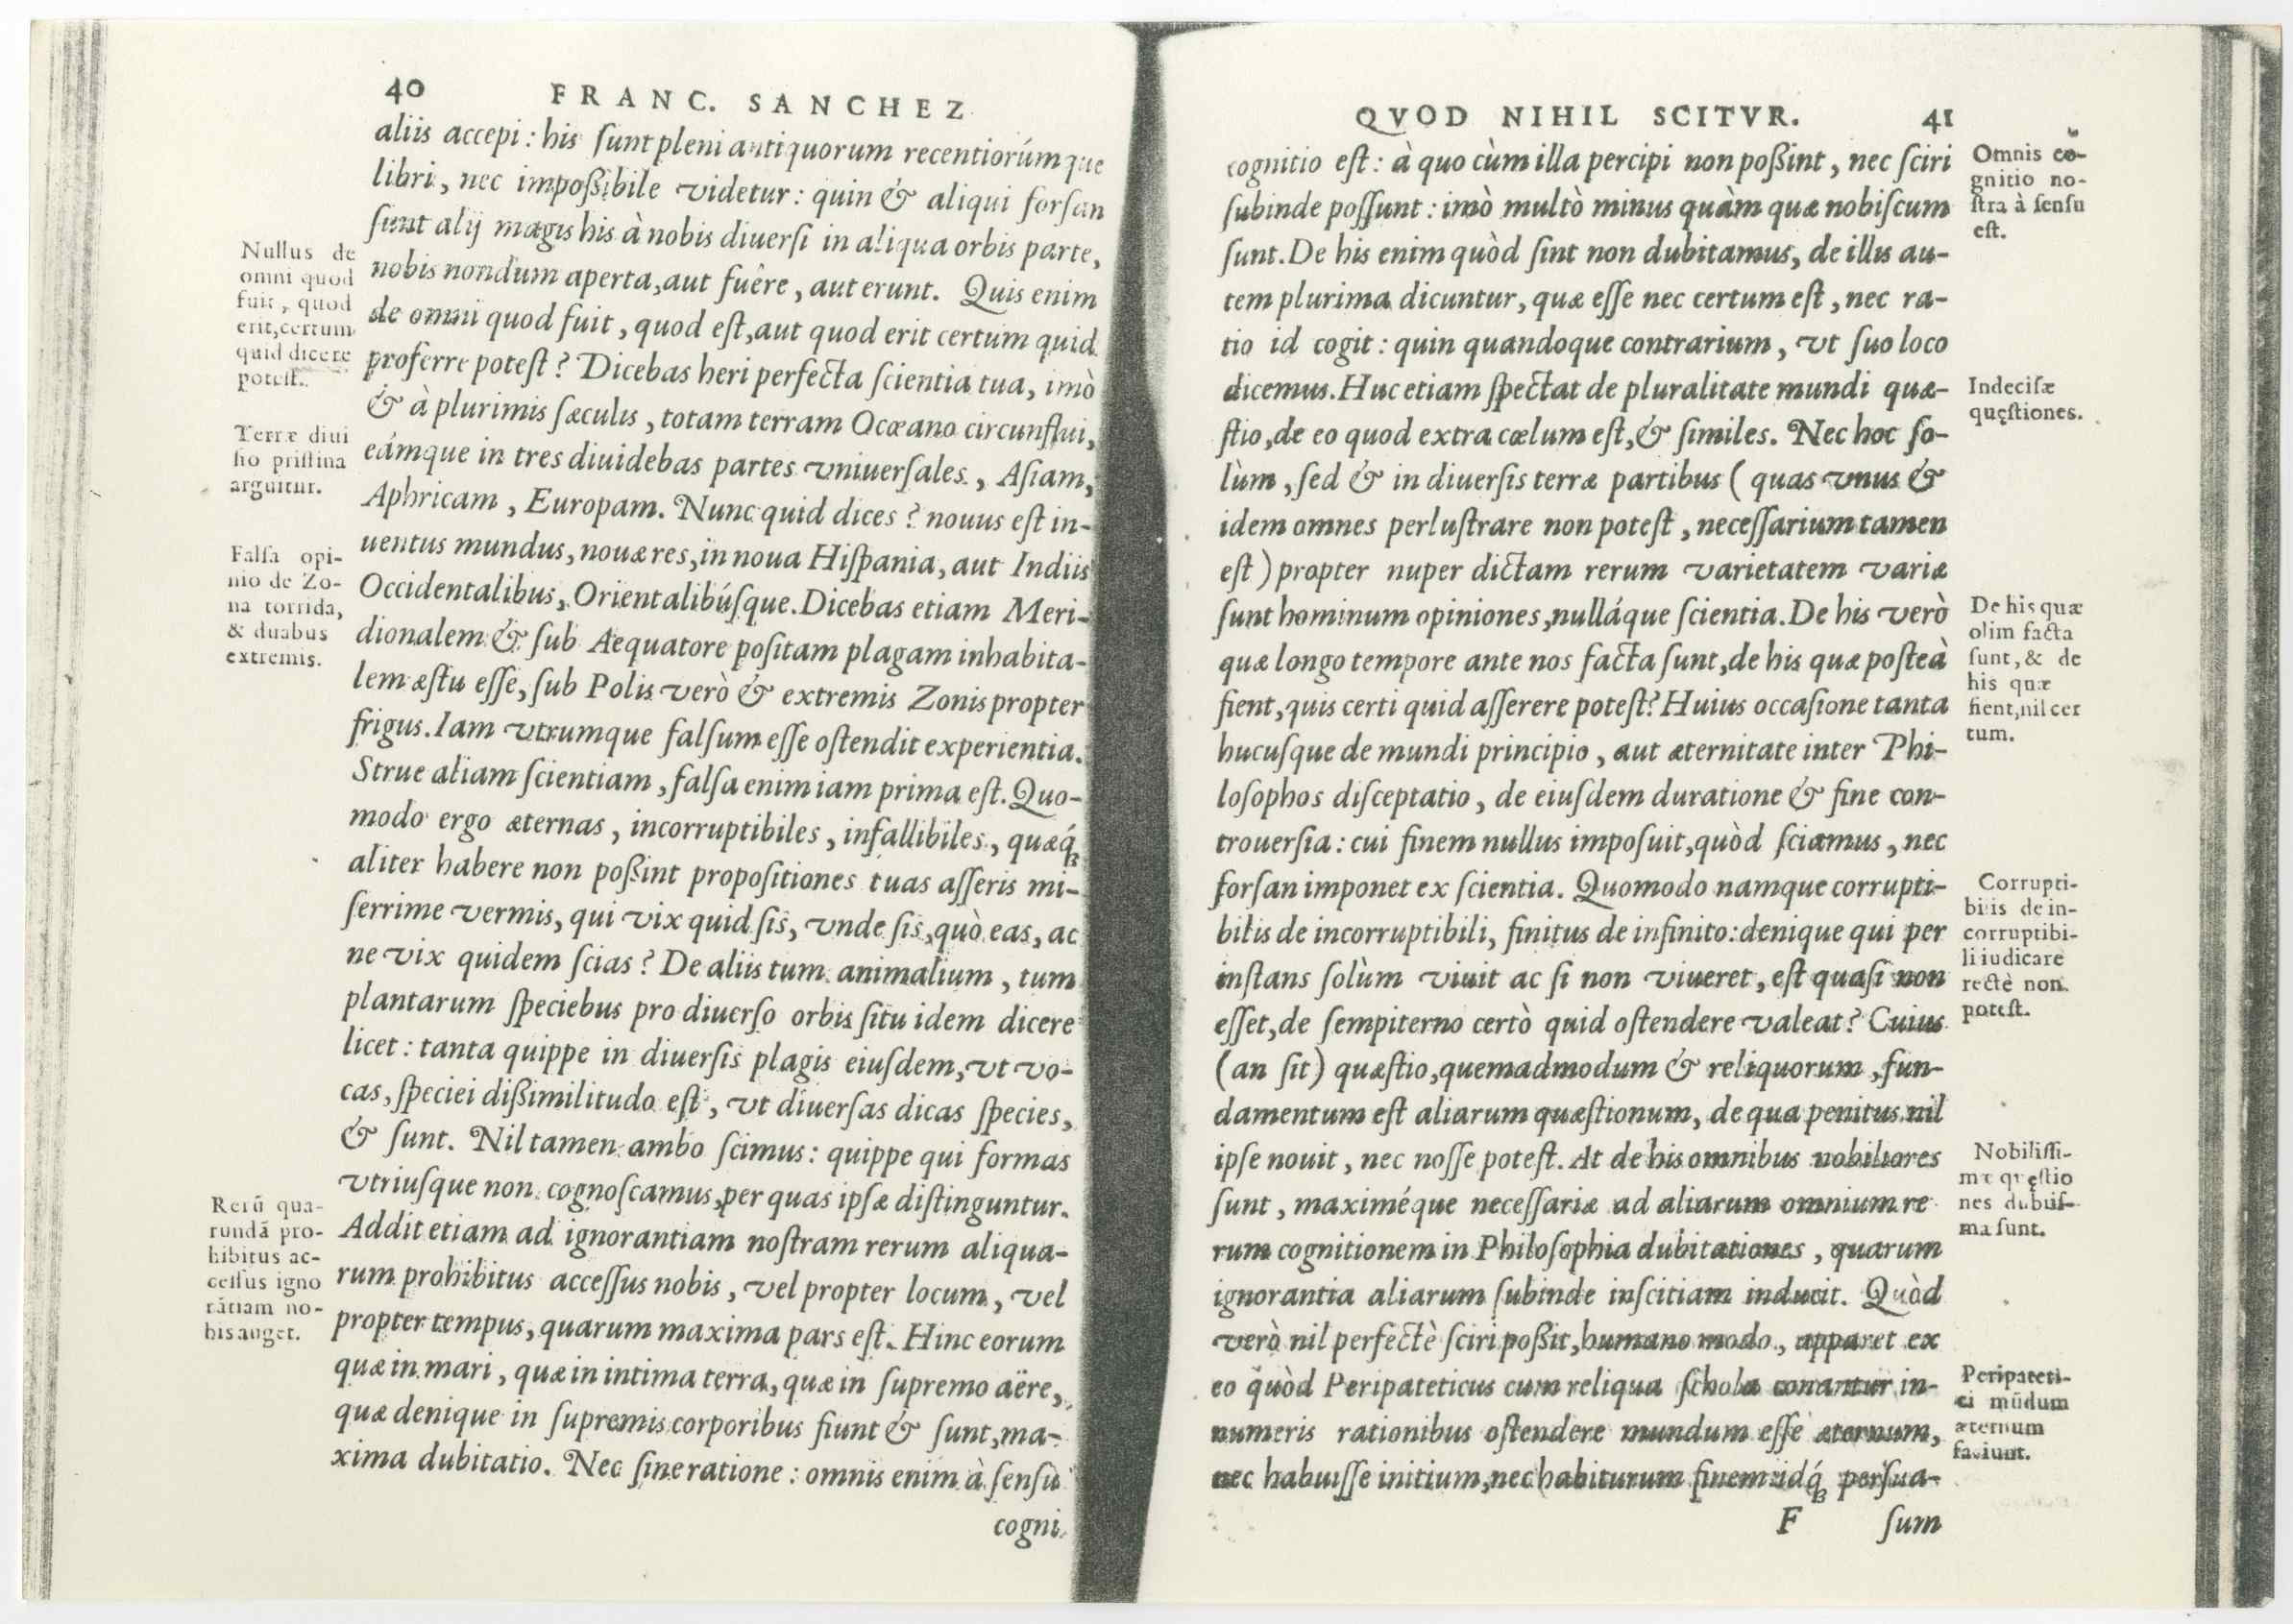 40 FRANC. SANCHEZ
aliis accepi: his ſunt pleni antiquorum recentiorúmque
libri, nec impoßibile videtur: quin & aliqui forſan
ſunt alij magis his à nobis diuerſi in aliqua orbis parte,
nobis nondum aperta, aut fuêre, aut erunt. Quis enim
de omni quod fuit, quod eſt, aut quod erit certum quid
proferre poteſt? Dicebas heri perfecta ſcientia tua, imò
& à plurimis ſæculis, totam terram Ocœano circunflui,
eámque in tres diuidebas partes vniuerſales, Aſiam,
Aphricam, Europam. Nunc quid dices? nouus eſt in-
uentus mundus, nouæ res, in noua Hiſpania, aut Indiis
Occidentalibus, Orientalibúſque. Dicebas etiam Meri-
dionalem & ſub Aequatore poſitam plagam inhabita-
lem æſtu eſſe, ſub Polis verò & extremis Zonis propter
frigus. Iam vtrumque falſum eſſe oſtendit experientia.
Strue aliam ſcientiam, falſa enim iam prima eſt. Quo-
modo ergo æternas, incorruptibiles, infallibiles, quæq́;
aliter habere non poßint propoſitiones tuas aſſeris mi-
ſerrime vermis, qui vix quid ſis, vnde ſis, quò eas, ac
ne vix quidem ſcias? De aliis tum animalium, tum
plantarum ſpeciebus pro diuerſo orbis ſitu idem dicere
licet: tanta quippe in diuerſis plagis eiuſdem, vt vo-
cas, ſpeciei dißimilitudo eſt, vt diuerſas dicas ſpecies,
& ſunt. Nil tamen ambo ſcimus: quippe qui formas
vtriuſque non cognoſcamus, per quas ipſæ diſtinguntur.
Addit etiam ad ignorantiam noſtram rerum aliqua-
rum prohibitus acceſſus nobis, vel propter locum, vel
propter tempus, quarum maxima pars eſt. Hinc eorum
quæ in mari, quæ in intima terra, quæ in ſupremo aëre,
quæ denique in ſupremis corporibus fiunt & ſunt, ma-
xima dubitatio. Nec ſine ratione: omnis enim à ſenſu
cogni
Nullus de
omni quod
fuit, quod
erit, certum
quid dicere
poteſt.
Terræ diui
ſio priſtina
arguitur.
Falſa opi-
nio de Zo-
na torrida,
& duabus
extremis.
Rerũ qua-
rundã pro-
hibitus ac-
ceſſus igno
rãtiam no-
bis auget.
QVOD NIHIL SCITVR. 41
cognitio eſt: à quo cùm illa percipi non poßint, nec ſciri
ſubinde poſſunt: imò multò minus quàm quæ nobiſcum
ſunt. De his enim quòd ſint non dubitamus, de illis au-
tem plurima dicuntur, quæ eſſe nec certum eſt, nec ra-
tio id cogit: quin quandoque contrarium, vt ſuo loco
dicemus. Huc etiam ſpectat de pluralitate mundi quæ-
ſtio, de eo quod extra cœlum eſt, & ſimiles. Nec hoc ſo-
lùm, ſed & in diuerſis terræ partibus (quas vnus &
idem omnes perluſtrare non poteſt, neceſſarium tamen
eſt) propter nuper dictam rerum varietatem variæ
ſunt hominum opiniones, nulláque ſcientia. De his verò
quæ longo tempore ante nos facta ſunt, de his quæ poſteà
fient, quis certi quid aſſerere poteſt? Huius occaſione tanta
hucuſque de mundi principio, aut æternitate inter Phi-
loſophos diſceptatio, de eiuſdem duratione & fine con-
trouerſia: cui finem nullus impoſuit, quòd ſciamus, nec
forſan imponet ex ſcientia. Quomodo namque corrupti-
bilis de incorruptibili, finitus de infinito: denique qui per
inſtans ſolùm viuit ac ſi non viueret, eſt quaſi non
eſſet, de ſempiterno certò quid oſtendere valeat? Cuius
(an ſit) quæſtio, quemadmodum & reliquorum, fun-
damentum eſt aliarum quæſtionum, de qua penitus nil
ipſe nouit, nec noſſe poteſt. At de his omnibus nobiliores
ſunt, maximéque neceſſariæ ad aliarum omnium re
rum cognitionem in Philoſophia dubitationes, quarum
ignorantia aliarum ſubinde inſcitiam inducit. Quòd
verò nil perfectè ſciri poßit, humano modo, apparet ex
eo quòd Peripateticus cum reliqua ſchola conantur in-
numeris rationibus oſtendere mundum eſſe æternum,
nec habuiſſe initium, nec habiturum finem: idq́; perſua-
F ſum
Omnis co-
gnitio no-
ſtra à ſenſu
eſt.
Indeciſæ
quęſtiones.
De his quæ
olim facta
ſunt, & de
his quæ
fient, nil cer
tum.
Corrupti-
bilis de in-
corruptibi-
li iudicare
rectè non
poteſt.
Nobiliſſi-
mæ quęſtio
nes dubiiſ-
ma ſunt.
Peripateti-
ci mũdum
æternum
faciunt.